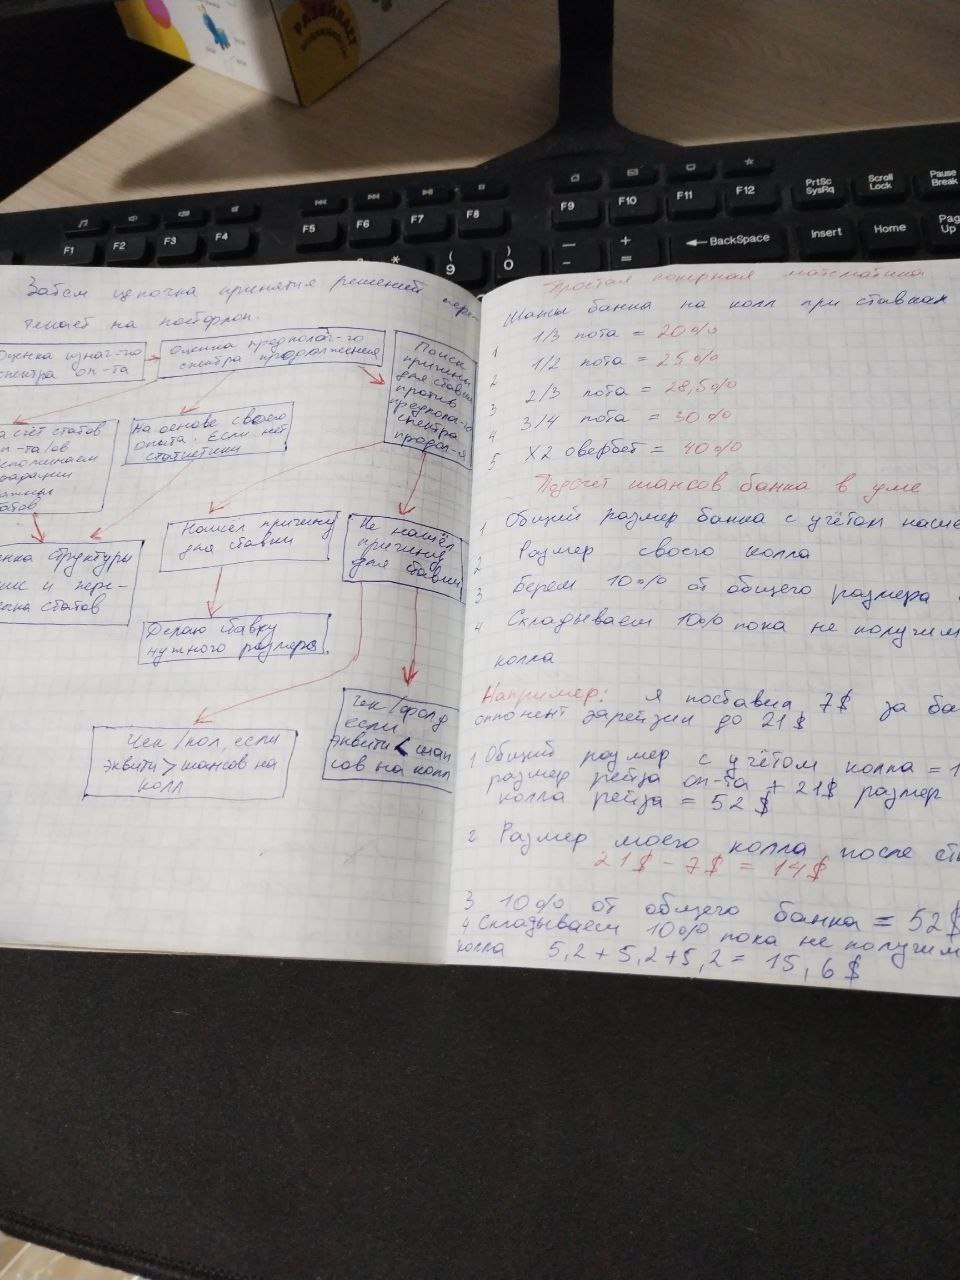 РАЗВИВАЕТ
F1
F2
F3
F4
F5
F6
F7
F8
F9
F10
F11
F12
PrtSc
SysRq
Scroll
Lock
Pause
Break
*
(
9
)
0
–
–
+
=
BackSpace
Insert
Home
Pag
Up
Затем цепочка принятия решений пере-
текает на постфлоп.
Оценка изнач-го
спектра оп-та
Оценка предполаг-го
спектра продолжения
Поиск
причины
для ставки
против
предполаг-го
спектра
продол-я
а счёт статов
оп-та/ов
споминаем
градации
важных
татов
На основе своего
опыта. Если нет
статистики
енка структуры
и пере-
енка статов
Нашёл причину
для ставки
Не нашёл
причину
для ставки
Делаю ставку
нужного размера
Чек/кол, если
эквити > шансов на
колл
Чек/фолд
если
эквити < шан
сов на колл
Простая покерная математика
Шансы банка на колл при ставках
1 1/3 пота = 20%
2 1/2 пота = 25%
3 2/3 пота = 28,5%
4 3/4 пота = 30%
5 X2 овербет = 40%
Подсчёт шансов банка в уме
1 Общий размер банка с учётом наше
2 Размер своего колла
3 Берем 10% от общего размера
4 Складываем 10% пока не получим
колла
Например: я поставил 7$ за ба
оппонент зарейзил до 21$
1 Общий размер с учётом колла = 1
размер рейза оп-та + 21$ размер
колла рейза = 52$
2 Размер моего колла после ст
21$ - 7$ = 14$
3 10% от общего банка = 52$
4 Складываем 10% пока не получим
колла 5,2 + 5,2 + 5,2 = 15,6$